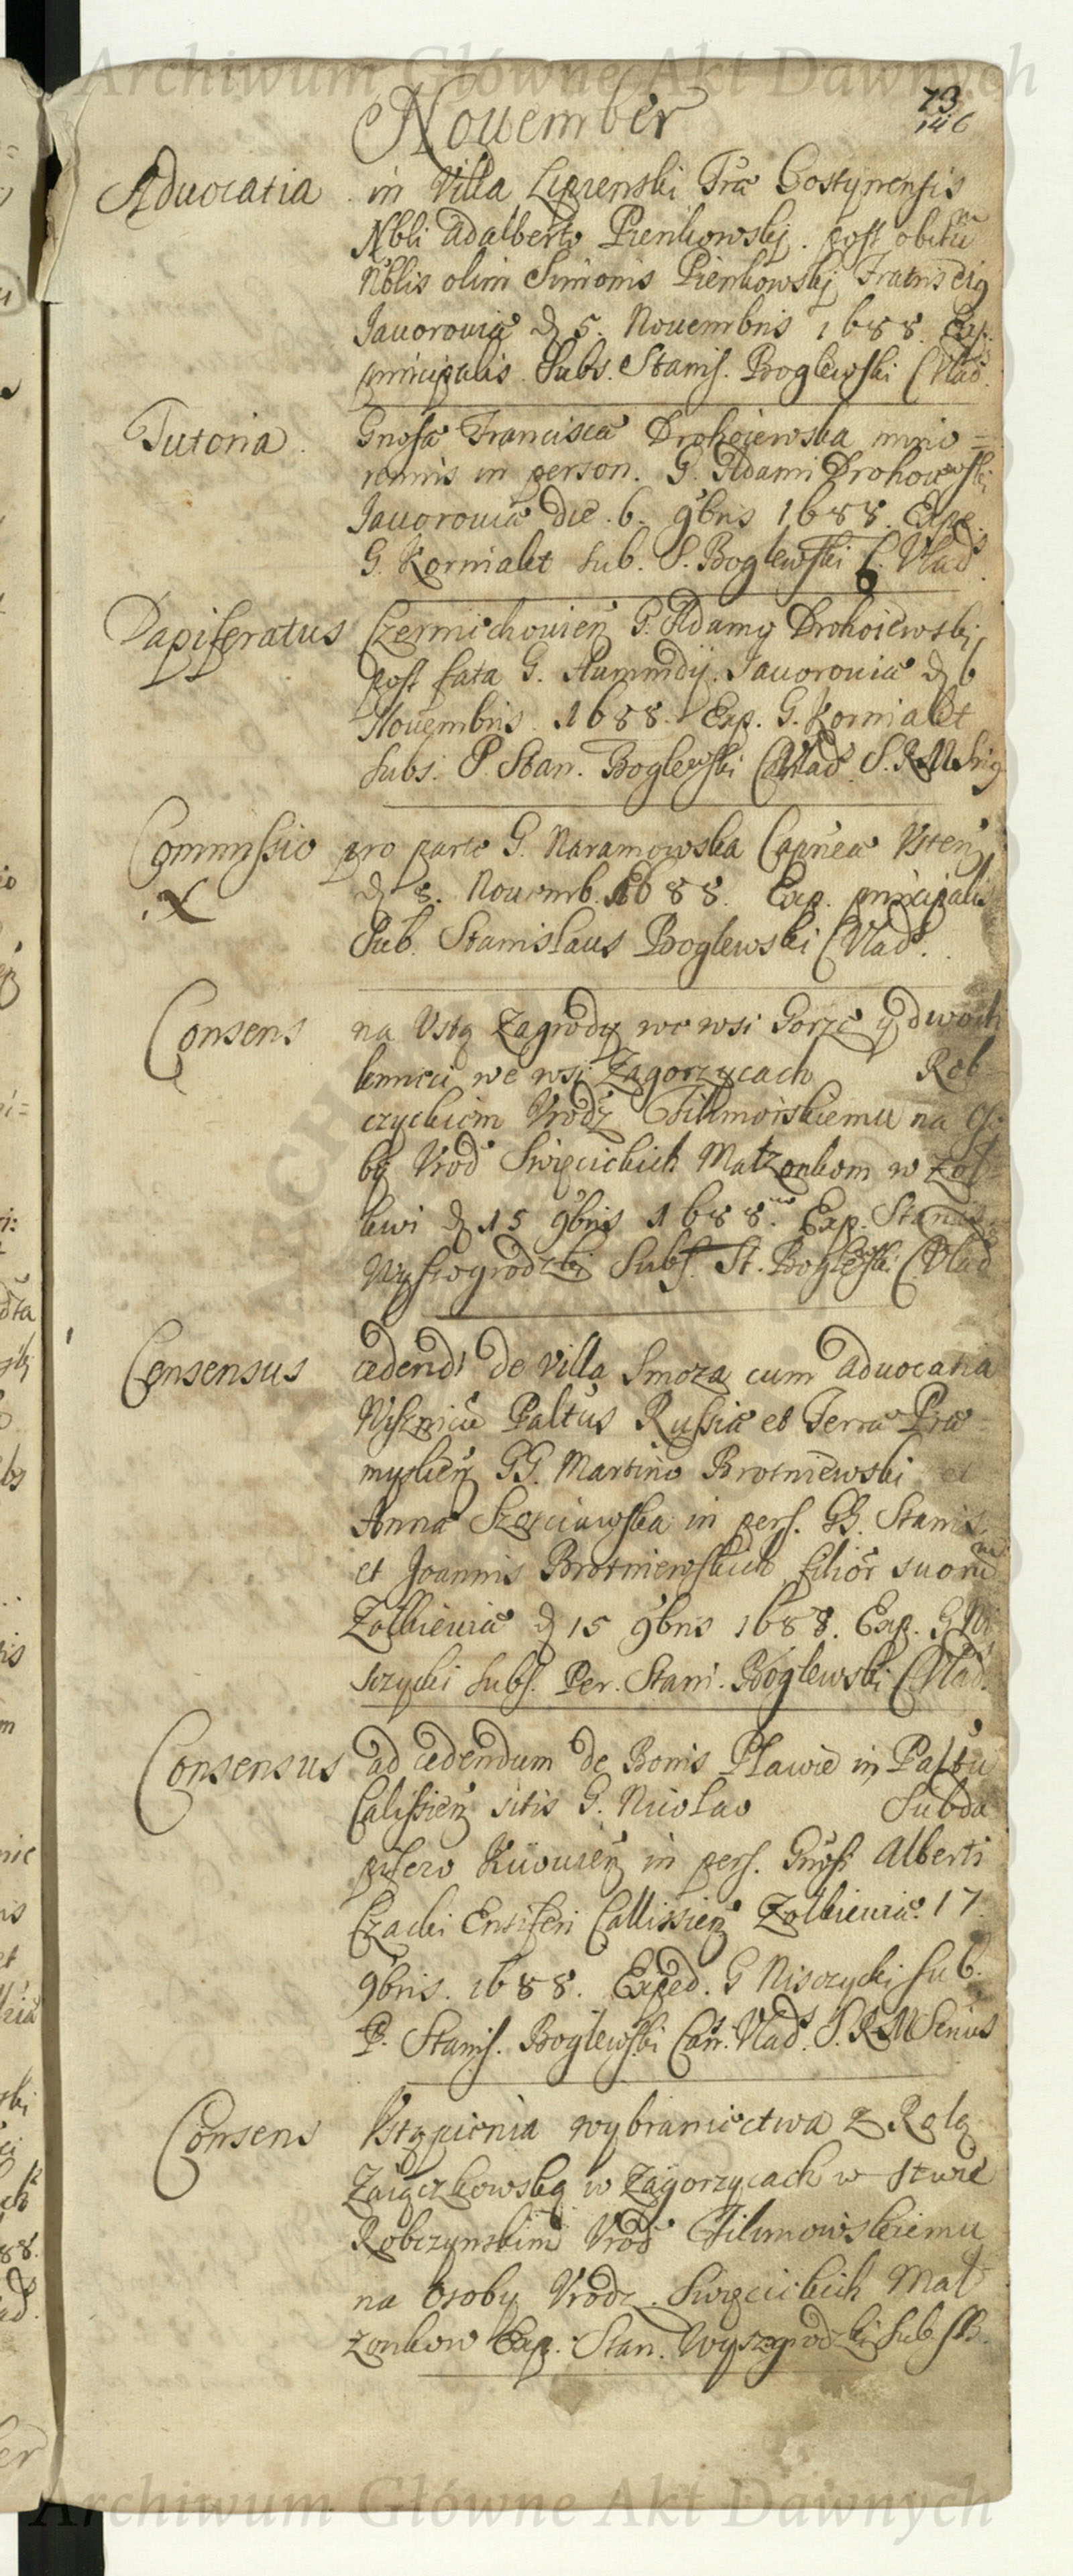 Archiwum Główne Akt Dawnych
Nouember
73
146
Aduocatia in Villa Lipienski Tra Gostynensis
Nbli Adalberto Pienkowskj. post obitum
Nblis olim Simonis Pienkowskj Fratris eig
Jauorouiæ d 5. Nouembris 1688. Exp.
principalis Subs. Stanis. Boglewski C Vlad.
Tutoria Gnosa Francisca Drohoiewska mino=
rennis in person. G. Adami Drohoiewski
Jauorouiæ die .6. 9bris 1688. Expe.
G. Korniakt sub. S. Boglewski C. Vlad.
Dapiferatus Czernichouien G. Adamo Drohoiewski
post fata G. Jauorouiæ d 6
Nouembris . 1688. Exp. G. Korniakt
subs. P. Stan. Boglewski C Vlad. S. R M Srig
Commissio pro parte G. Naramowska Capnea Vsten
X d 8. Nouemb. 1688. Exp. principalis
Sub. Stanislaus Boglewski C Vlad.
Consens na Vstą Zagrody we wsi Gorze y dwoch
kmieci we wsi Zagorzycach Rob=
czyckiem Vrodz Filimowskiemu na Oso
by Vrod Swięcickich Małzonkom w Zoł=
kwi d 15 9bris 1688. Exp. Stanis.
Wyszogrodzki Subs. St. Boglewski C Vlad
Consensus cedendi de Villa Smoza cum aduocatia
Paltus Russiæ et Terræ Præ=
myslien GG. Martino Brotniewski et
Anna in pers. GG. Stanis.
et Joannis Brotniewskich filior suorum
Zolkieuiæ d 15 9bris 1688. Exp. G. Ni
sczycki subs. Per. Stani. Boglewski C Vlad.
Consensus ad cedendum de Bonis Pławie in Paltu
Calissien sitis G. Nicolao Subda
pifero Kiiouien in pers. Gnosi Alberti
Czacki Ensiferi Callissien Zolkieuiæ. 17.
9bris. 1688. Exped. G Nisczycki sub.
P. Stanis. Boglewski Can. Vlad. S. R M Senius
Consens Vstąpienia wybraniectwa z Rolą
Zaiączkowską w Zagorzycach w stwie
Robczynskim Vrod Filimowskiemu
na Osoby Vrodz. Swięcickich Mał
zonkow Exp. Stan. Wyszogrodzki Sub SB.
Archiwum Główne Akt Dawnych